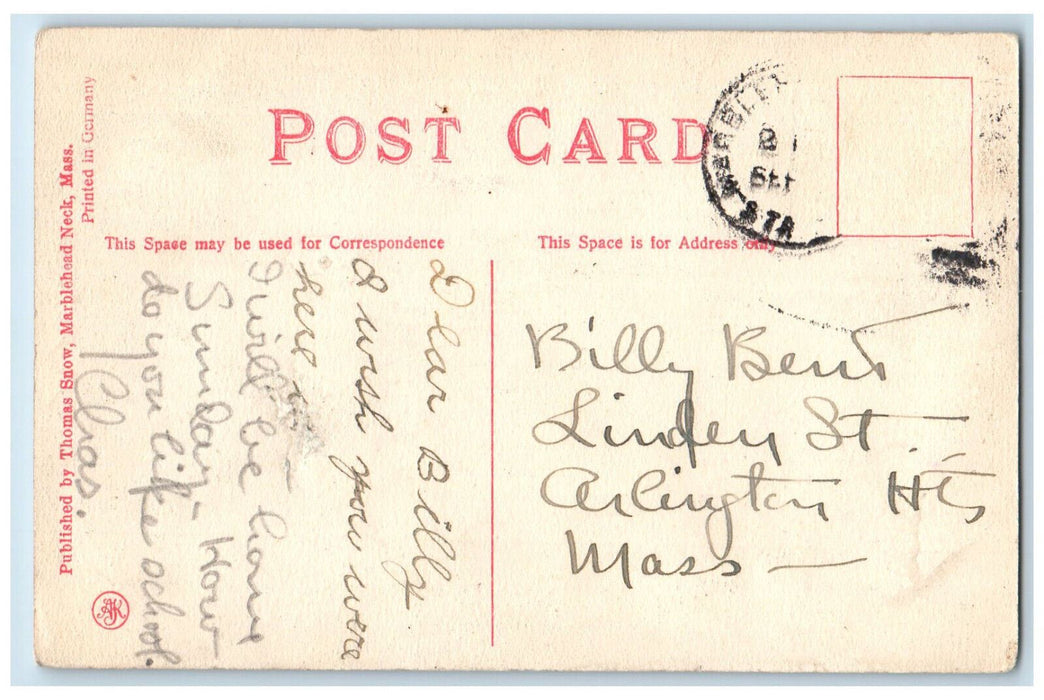 POST CARD
This Space may be used for Correspondence
This Space is for Address only
Published by Thomas Snow, Marblehead Neck, Mass.
Printed in Germany
Dear Billy
I wish you were
here
I will be home
Sunday. How
do you like school.
Chas.
Billy Bent
Linden St.
Arlington Hts
Mass
SEP
STA
AJK